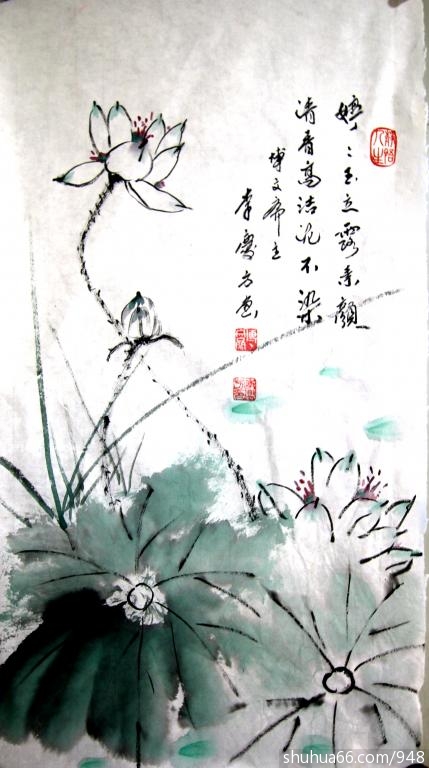 婷婷玉立露素颜
清香高洁泥不染
博文斋主
李庆方画
shuhua66.com/948